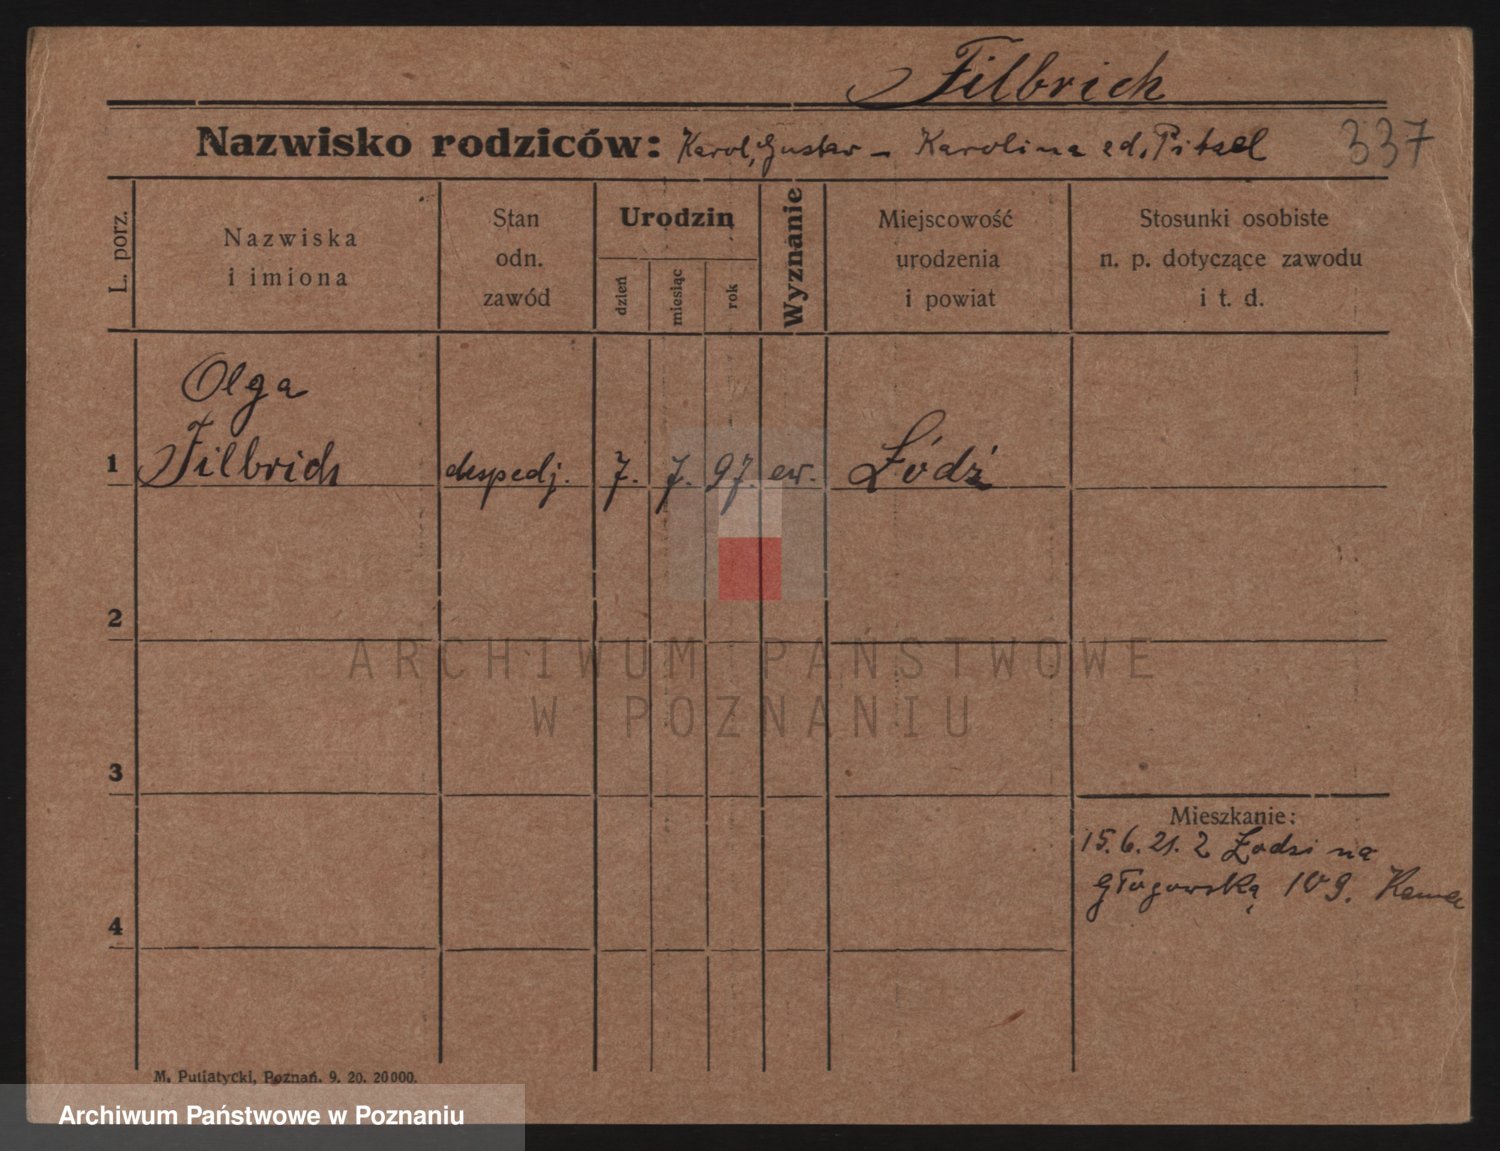 Filbrich
Nazwisko rodziców: Karol, Gustav – Karolina
337
L. porz.
Nazwiska
i imiona
Stan
odn.
zawód
Urodzin
dzień
miesiąc
rok
Wyznanie
Miejscowość
urodzenia
i powiat
Stosunki osobiste
n. p. dotyczące zawodu
i t. d.
Olga
1 Filbrich ekspedj. 7. 7. 97. ew. Łódź
2
3
4
ARCHIWUM PAŃSTWOWE
W POZNANIU
Mieszkanie:
15.6.21. z Łodzi na
Głogowską 109.
M. Putiatycki, Poznań. 9. 20. 20000.
Archiwum Państwowe w Poznaniu